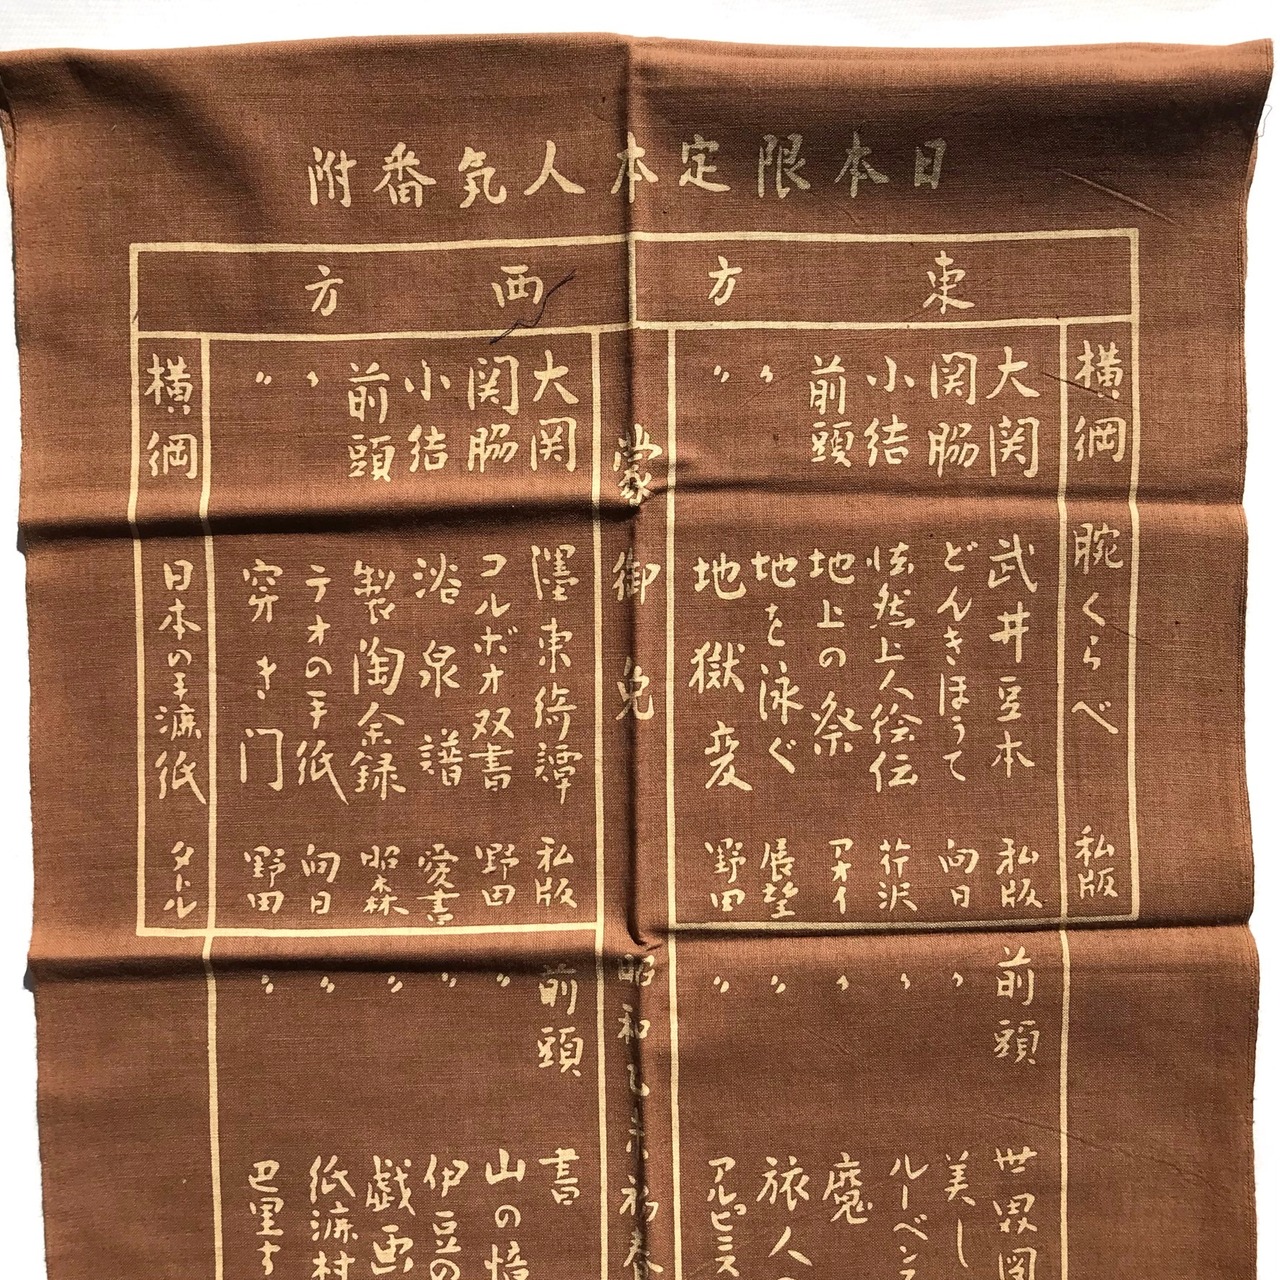 日本限定本人気番附
東方
横綱 腕くらべ 私版
大関 武井豆本 私版
関脇 どんきほうて 向日
小結 怯然上人絵伝 芹沢
前頭 地上の祭 アオイ
〃 地を泳ぐ 展望
〃 地獄変 野田
前頭 世界図
〃 美し
〃 ルーベン
〃 魔
〃 旅人
〃 アルピニス
蒙御免
昭和
初春
西方
大関 濹東綺譚 私版
関脇 コルボオ双書 野田
小結 浴泉譜 愛書
前頭 製陶余録 昭森
〃 テオの手紙 向日
〃 窄き門 野田
横綱 日本の手漉紙 タトル
前頭 書
〃 山の憶
〃 伊豆の
〃 戯画
〃 紙漉村
〃 巴里す